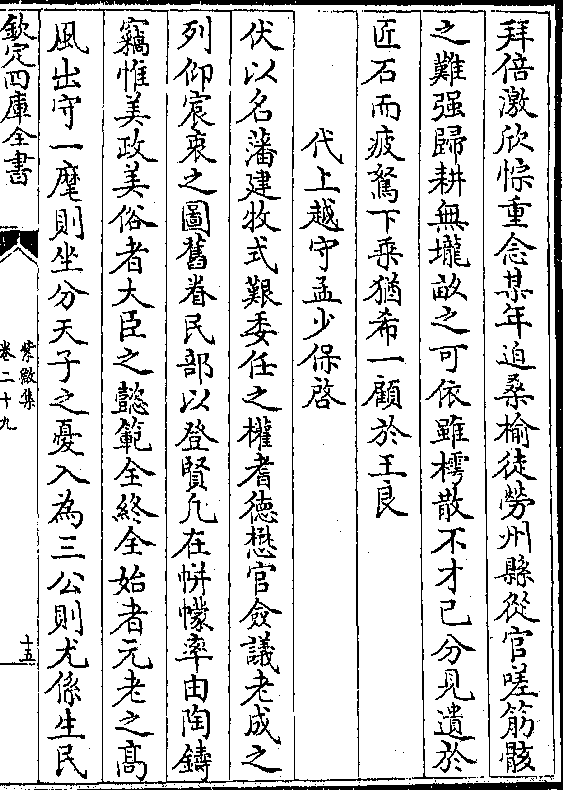 拜倍激欣悰重念某年迫桑榆徒勞州縣從官嗟筋骸
之難强歸耕無壠畝之可依雖樗散不才已分見遺於
匠石而疲駑下乗猶希一顧於王良
代上越守孟少保啓
伏以名藩建牧式艱委任之權耆徳懋官僉議老成之
列仰宸衷之圖舊眷民部以登賢凡在帡幪率由陶鑄
竊惟美政美俗者大臣之懿範全終全始者元老之髙
風出守一麾則坐分天子之憂入為三公則尤係生民
欽定四庫全書
紫微集
卷二十九
十五